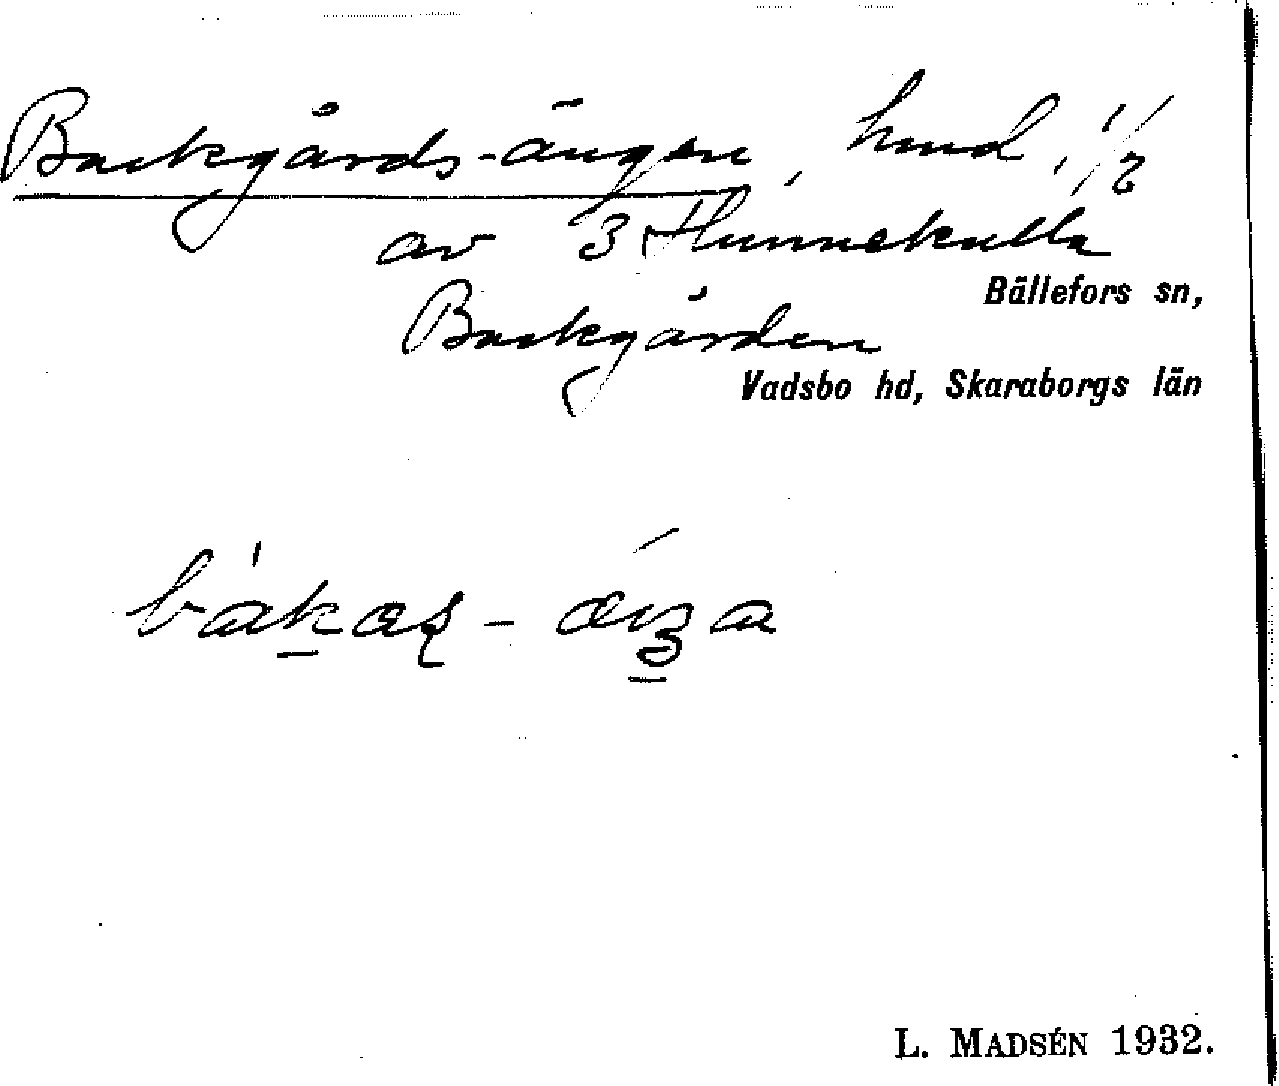 Backgårds-ängen, hmd, 1/2
av 3 Hunnekulla
Bällefors sn,
Backgården
Vadsbo hd, Skaraborgs län
L. MADSÉN 1932.